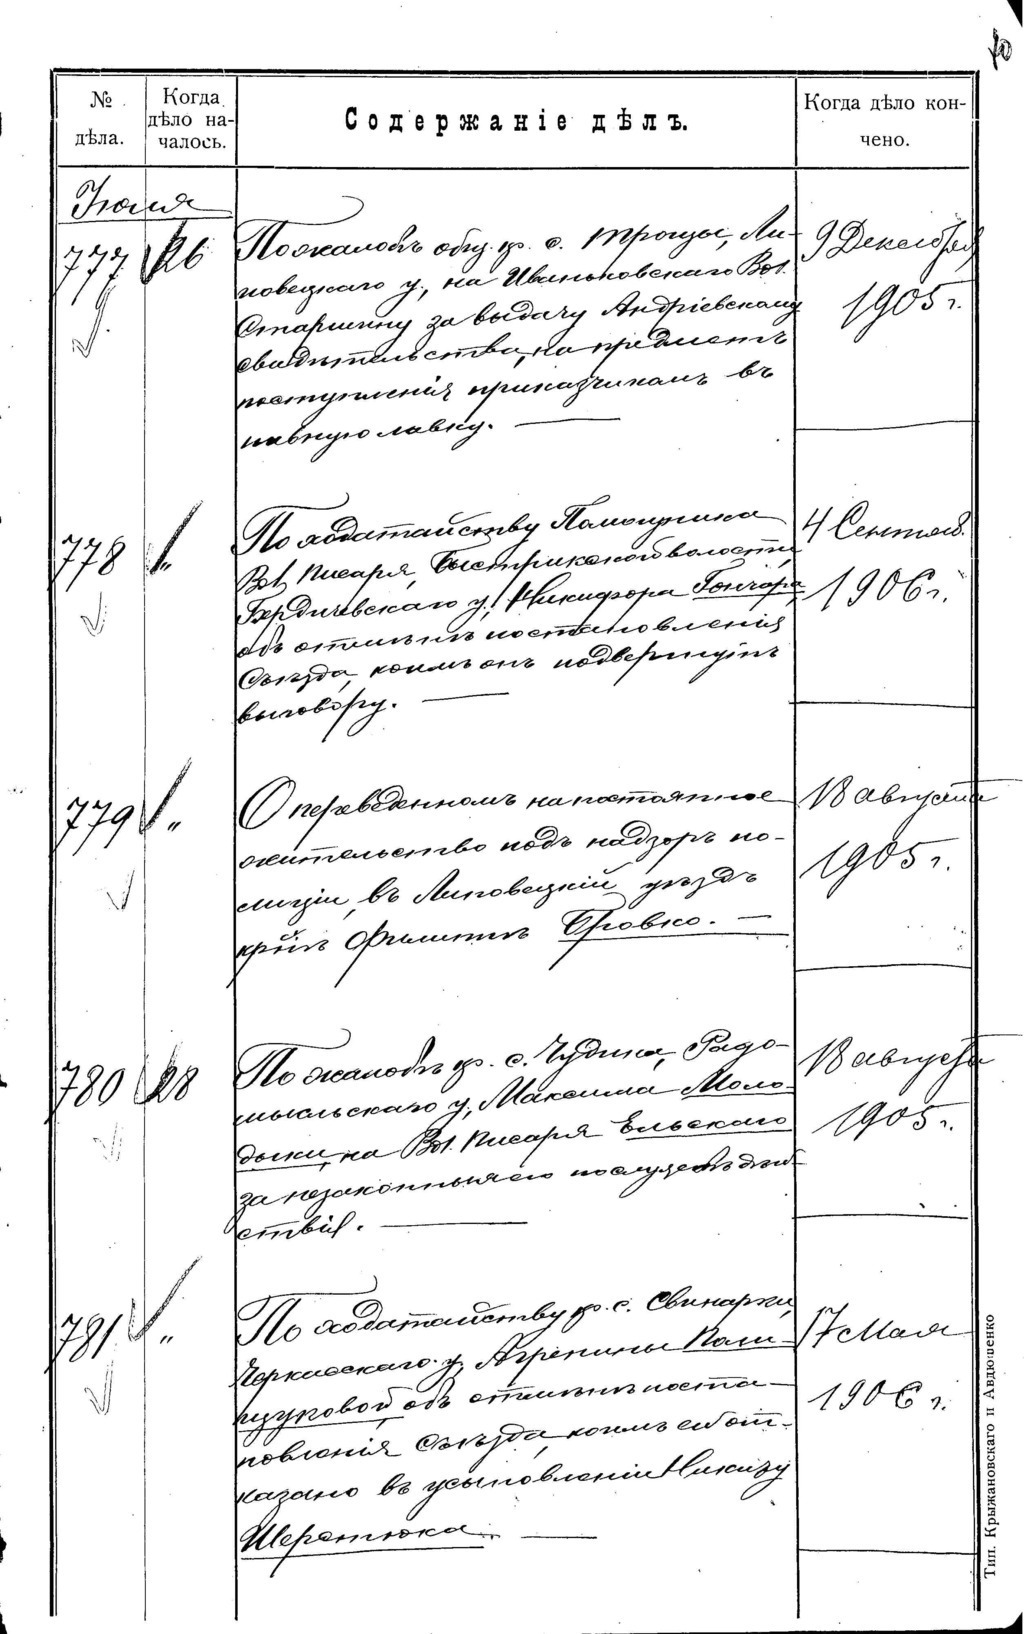 № дѣла.
Когда дѣло началось.
Содержаніе дѣлъ.
Когда дѣло кончено.
Іюля
777 26
По жалобѣ общ. кр. с. Троицы, Ли-
повецкаго у., на Иваньковскаго Вол.
Старшину за выдачу Андріевскому
свидѣтельства, на предметъ
поступленія приказчикомъ въ
пивную лавку. —
9 Декабря
1905 г.
778 „
По ходатайству Помощника
Вол. Писаря, Быстрикской волости,
Бердичевскаго у., Никифора Гончара
объ отмѣнѣ постановленія
Съѣзда, коимъ онъ подвергнутъ
выговору. —
4 Сентяб.
1906 г.
779 „
О переведенномъ на постоянное
жительство подъ надзоръ по-
лиціи, въ Липовецкій уѣздъ
кр-нѣ Филиппѣ Бровко. —
18 августа
1905 г.
780 28
По жалобѣ кр. с. Чудина, Радо-
мысльскаго у., Максима Моло-
дыки, на Вол. Писаря Ельскаго
за незаконныя его дѣй-
ствія. —
18 августа
1905 г.
781 „
По ходатайству кр. с. Свинарки,
Черкасскаго у. Агрепины
объ отмѣнѣ поста-
новленія Съѣзда, коимъ ей от-
казано въ усыновленіи
Шеретюка. —
17 Мая
1906 г.
Тип. Крыжановскаго и Авдюшенко